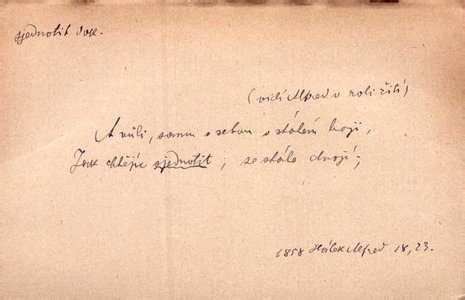 sjednotit dok.
(vidí Alfred v roli žití)
A vůli, samu s sebou v stálém boji,
Jak chtějíc sjednotit, se stále dvojí;
1858 Hálek Alfred 18, 23.